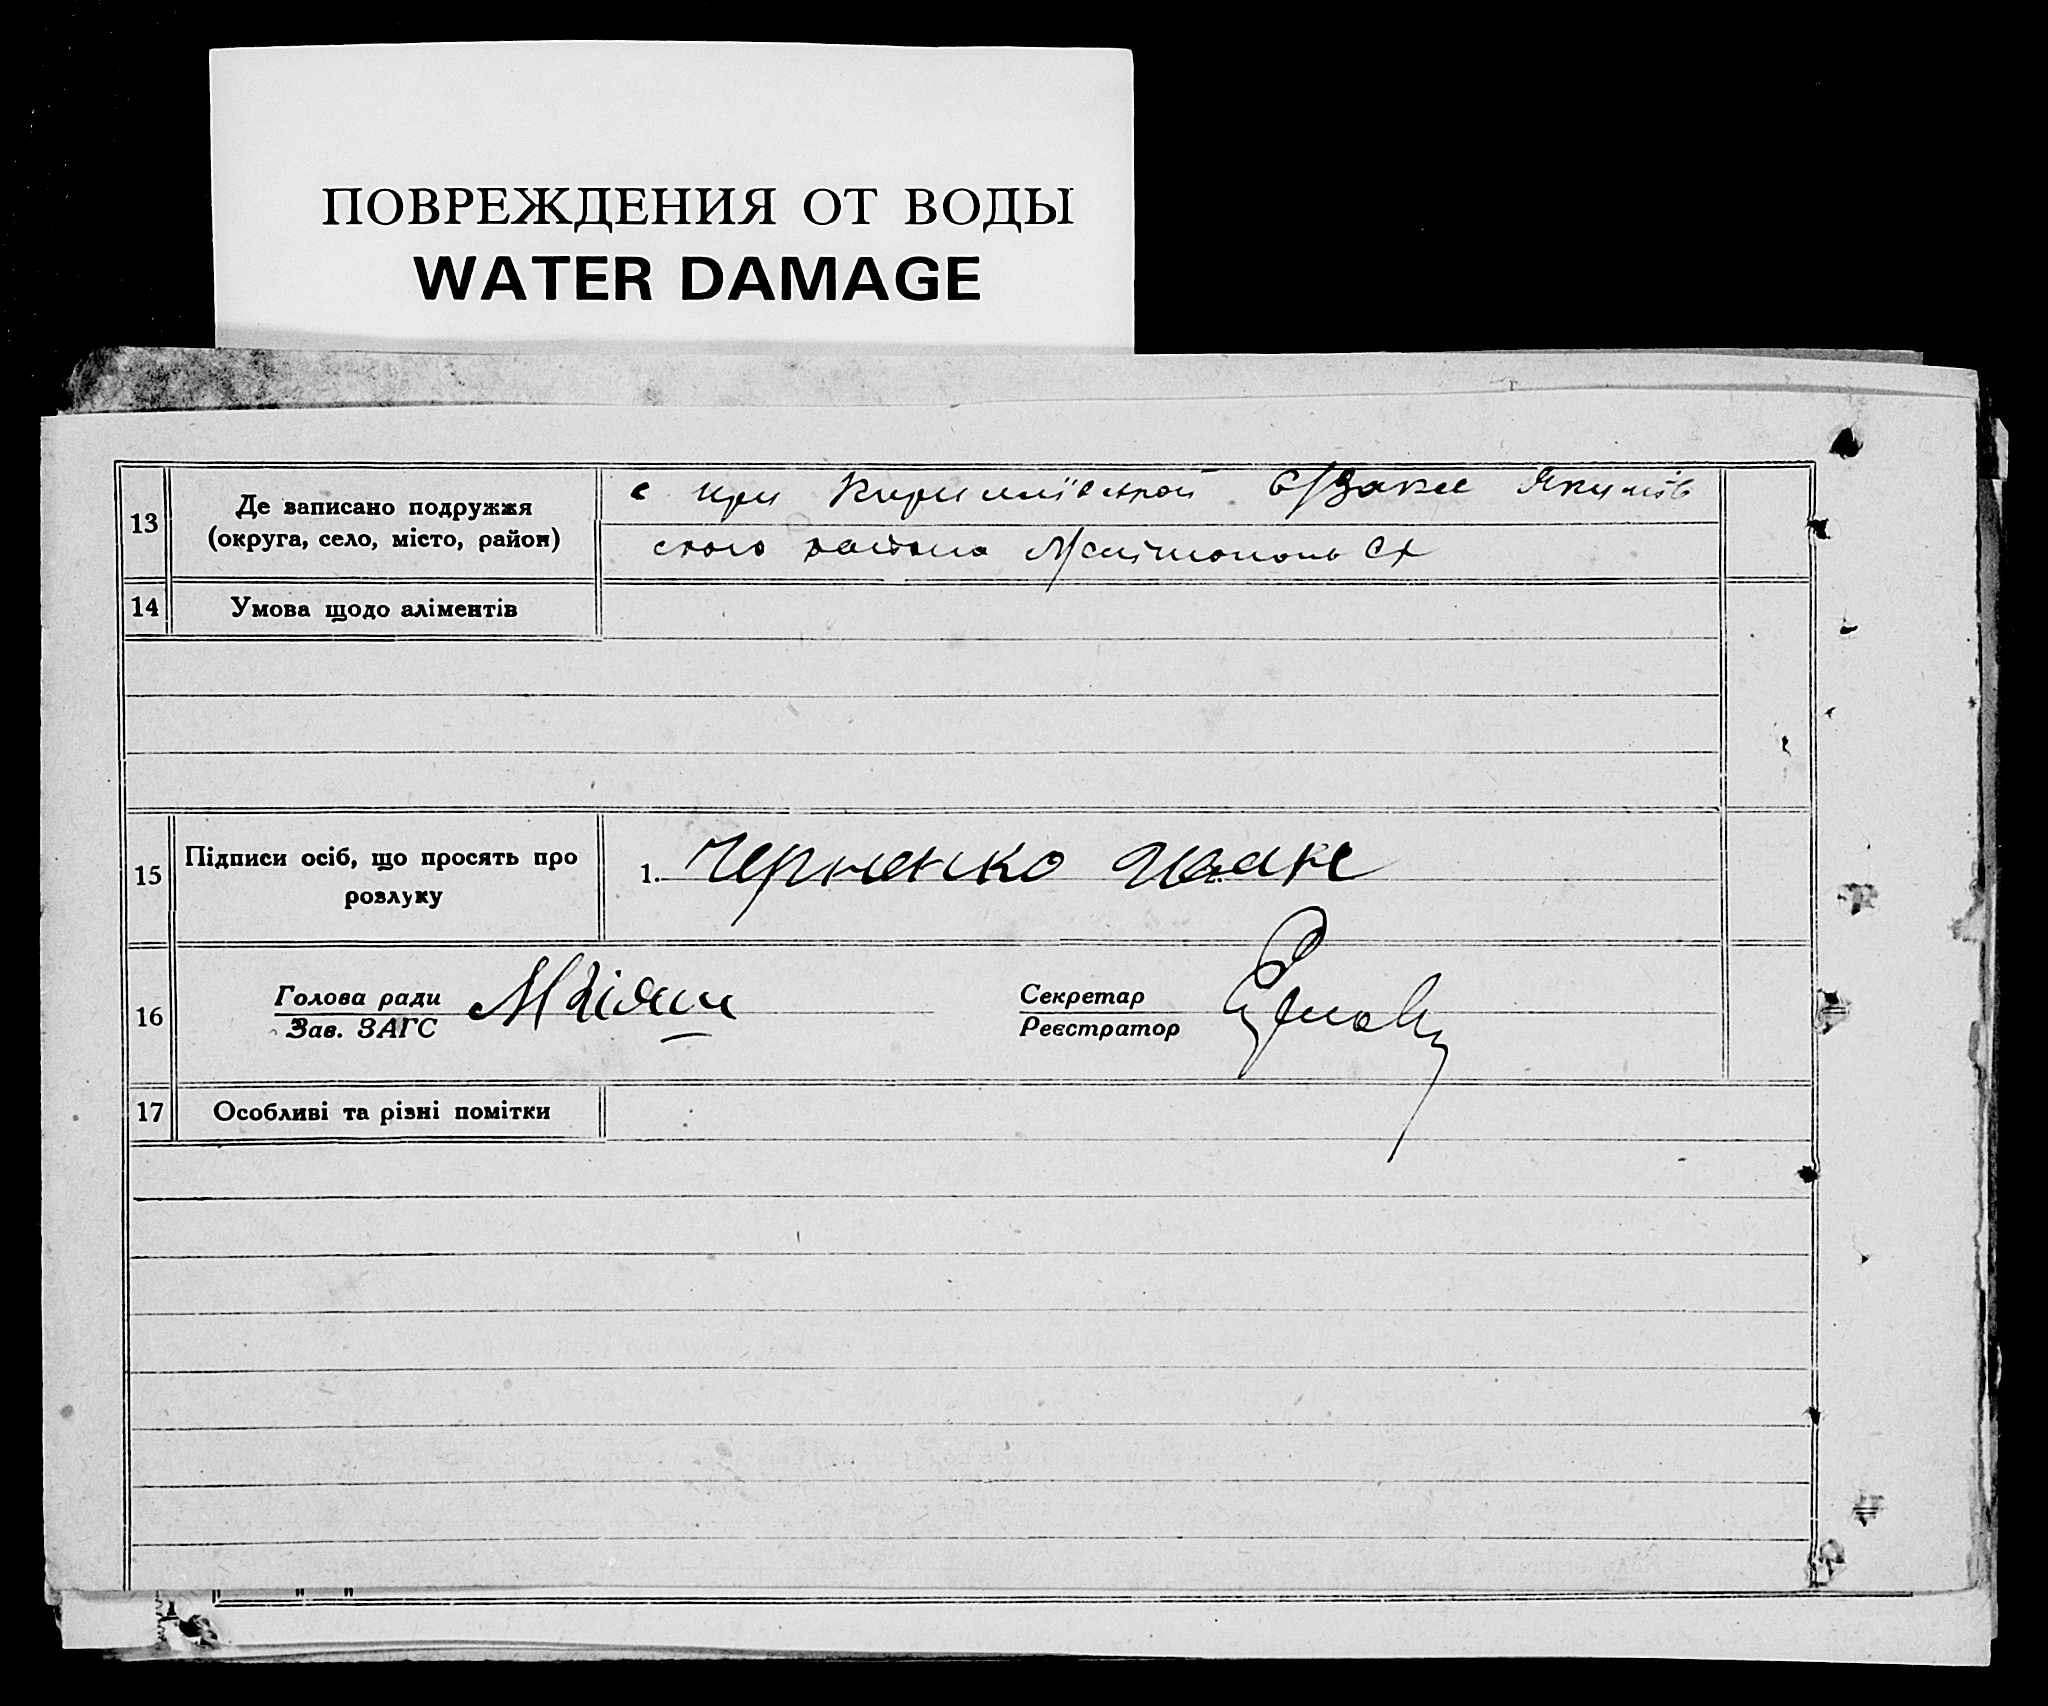 ПОВРЕЖДЕНИЯ ОТ ВОДЫ
WATER DAMAGE
13
Де записано подружжя
(округа, село, місто, район)
при Кирилівской с/Загсе Якимів
ского района Мелітополь
14 Умова щодо аліментів
15
Підписи осіб, що просять про
розлуку
1. Черненко Иван
16
Голова ради
Зав. ЗАГС
Секретар
Реєстратор
17 Особливі та різні помітки